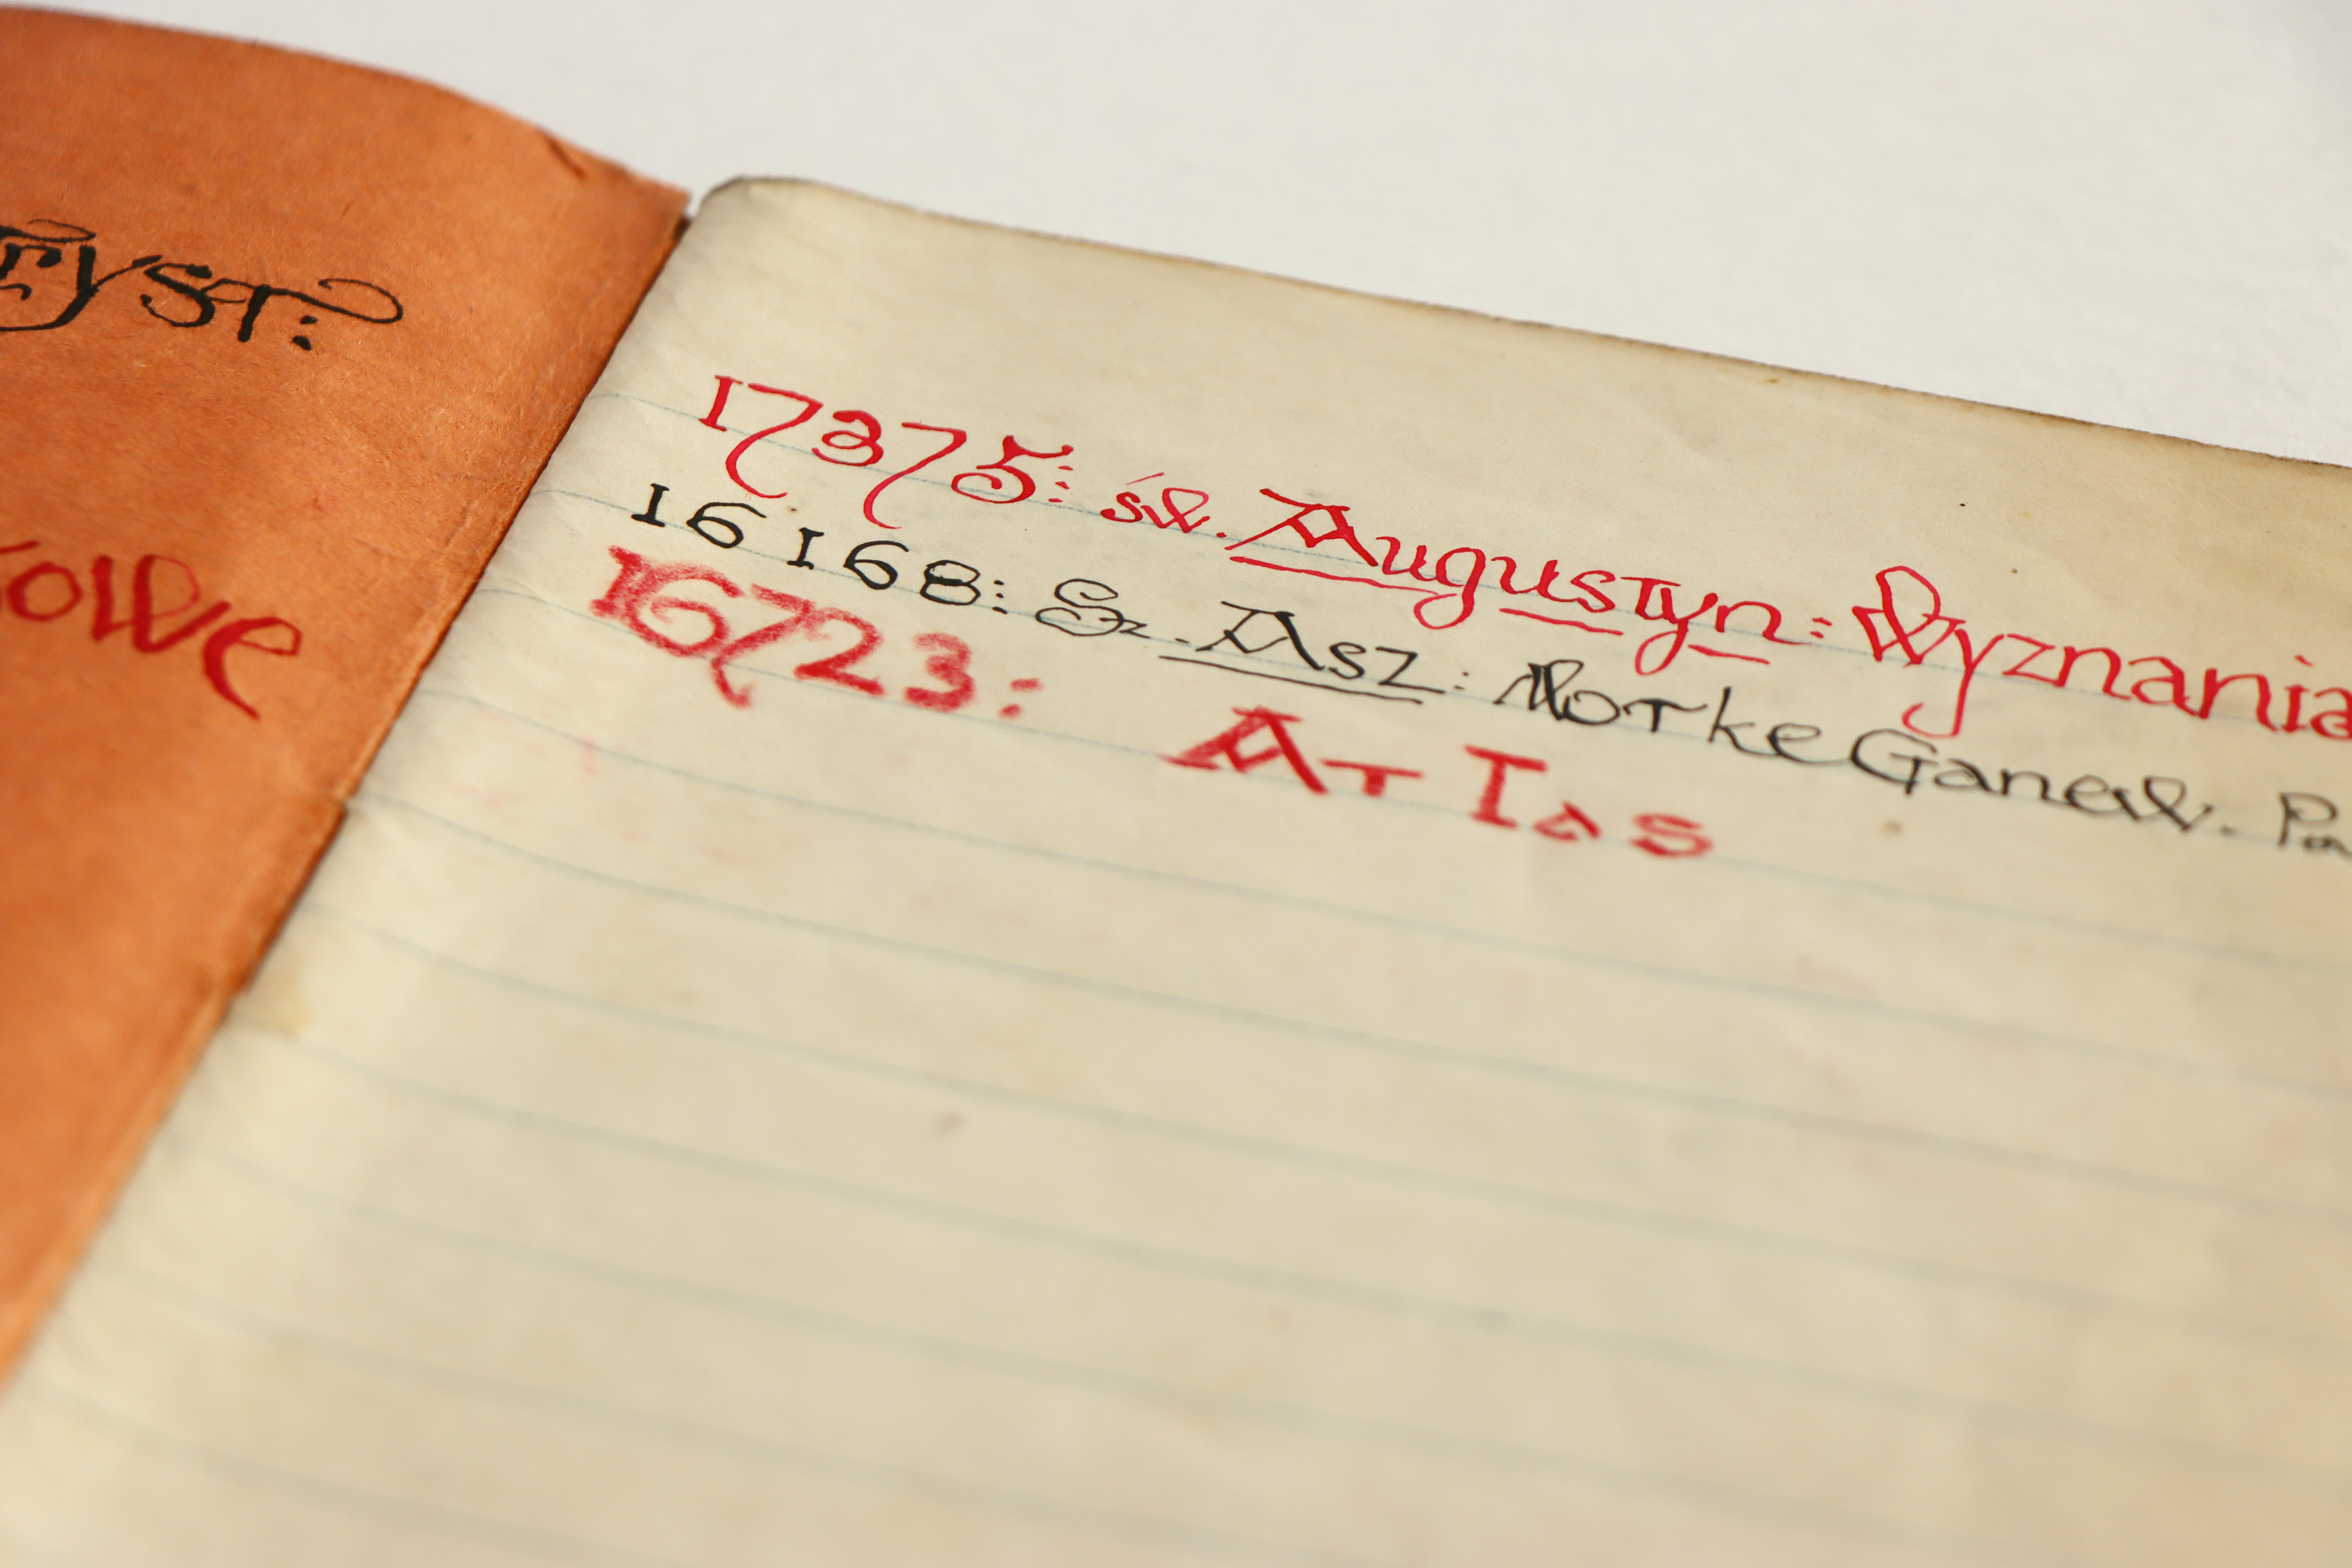 17375: św. Augustyn: Wyznania
16168: Sz. Asz: Motke Ganew. Pa
16723: ATlas